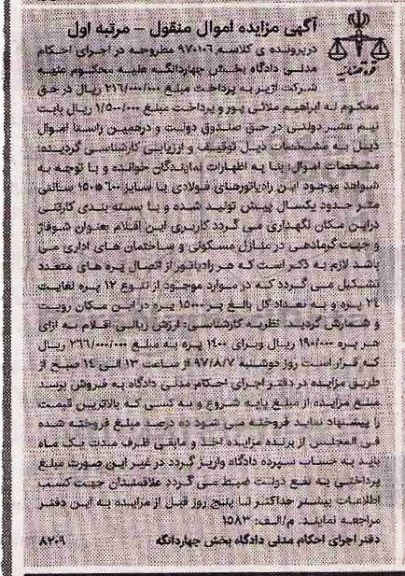 آگهی مزایده اموال منقول – مرتبه اول
درپرونده ی کلاسه ۹۷۰۱۰۶ مطروحه در اجرای احکام
مدنی دادگاه بخش چهاردانگه علیه محکوم علیه
شرکت آژیر به پرداخت مبلغ ۲۱۶/۰۰۰/۰۰۰ ریال در حق
محکوم له ابراهیم ملائی پور و پرداخت مبلغ ۱/۵۰۰/۰۰۰ ریال بابت
نیم عشر دولتی در حق صندوق دولت و درهمین راستا اموال
ذیل به مشخصات ذیل توقیف و ارزیابی کارشناسی گردیده:
مشخصات اموال: بنا به اظهارات نمایندگان خوانده و با توجه به
شواهد موجود این رادیاتورهای فولادی با سایز ۶۰۰*۱۵۰ سانتی
متر حدود یکسال پیش تولید شده و با بسته بندی کارتنی
دراین مکان نگهداری می گردد کاربری این اقلام بعنوان شوفاژ
و جهت گرمادهی در منازل مسکونی و ساختمان های اداری می
باشد لازم به ذکر است که هر رادیاتور از اتصال پره های متعدد
تشکیل می گردد که در موارد موجود از تنوع ۱۲ پره لغایت
۲۴ پره و به تعداد کل بالغ بر ۱۵۰۰۰ پره در این مکان رویت
و شمارش گردید. نظریه کارشناسی: ارزش ریالی اقلام به ازای
هر پره ۱۹۰/۰۰۰ ریال وبرای ۱۴۰۰ پره به مبلغ ۲۶۶/۰۰۰/۰۰۰ ریال
که قرار است روز دوشنبه ۹۷/۸/۷ از ساعت ۱۳ الی ۱۴ صبح از
طریق مزایده در دفتر اجرای احکام مدنی دادگاه به فروش برسد
مبلغ مزایده از مبلغ پایه شروع و به کسی که بالاترین قیمت
را پیشنهاد نماید فروخته می شود ده درصد مبلغ فروخته شده
فی المجلس از برنده مزایده اخذ و مابقی ظرف مدت یک ماه
باید به حساب سپرده دادگاه واریز گردد در غیر این صورت مبلغ
پرداختی به نفع دولت ضبط می گردد علاقمندان جهت کسب
اطلاعات بیشتر حداکثر تا پنج روز قبل از مزایده به این دفتر
مراجعه نمایند. م/الف: ۱۵۸۳
دفتر اجرای احکام مدنی دادگاه بخش چهاردانگه ۸۲۰۹